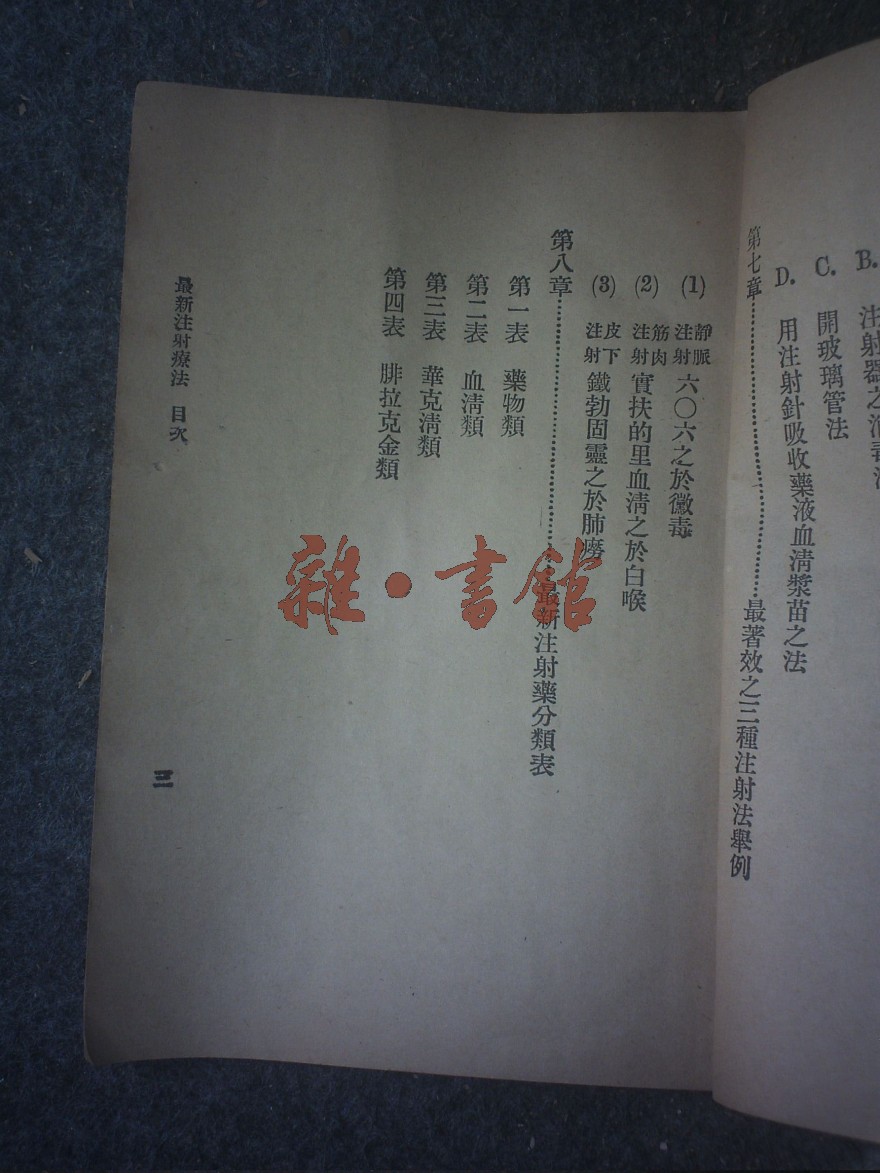 B. 注射器之消毒法
C. 開玻璃管法
D. 用注射針吸收藥液血淸漿苗之法
第七章⋯⋯⋯⋯⋯⋯最著效之三種注射法舉例
(1) 靜脈注射 六〇六之於黴毒
(2) 筋肉注射 實扶的里血淸之於白喉
(3) 皮下注射 鐵勃固靈之於肺癆
第八章⋯⋯⋯⋯⋯⋯最新注射藥分類表
第一表 藥物類
第二表 血淸類
第三表 華克淸類
第四表 腓拉克金類
最新注射療法 目次
三
雜·書館